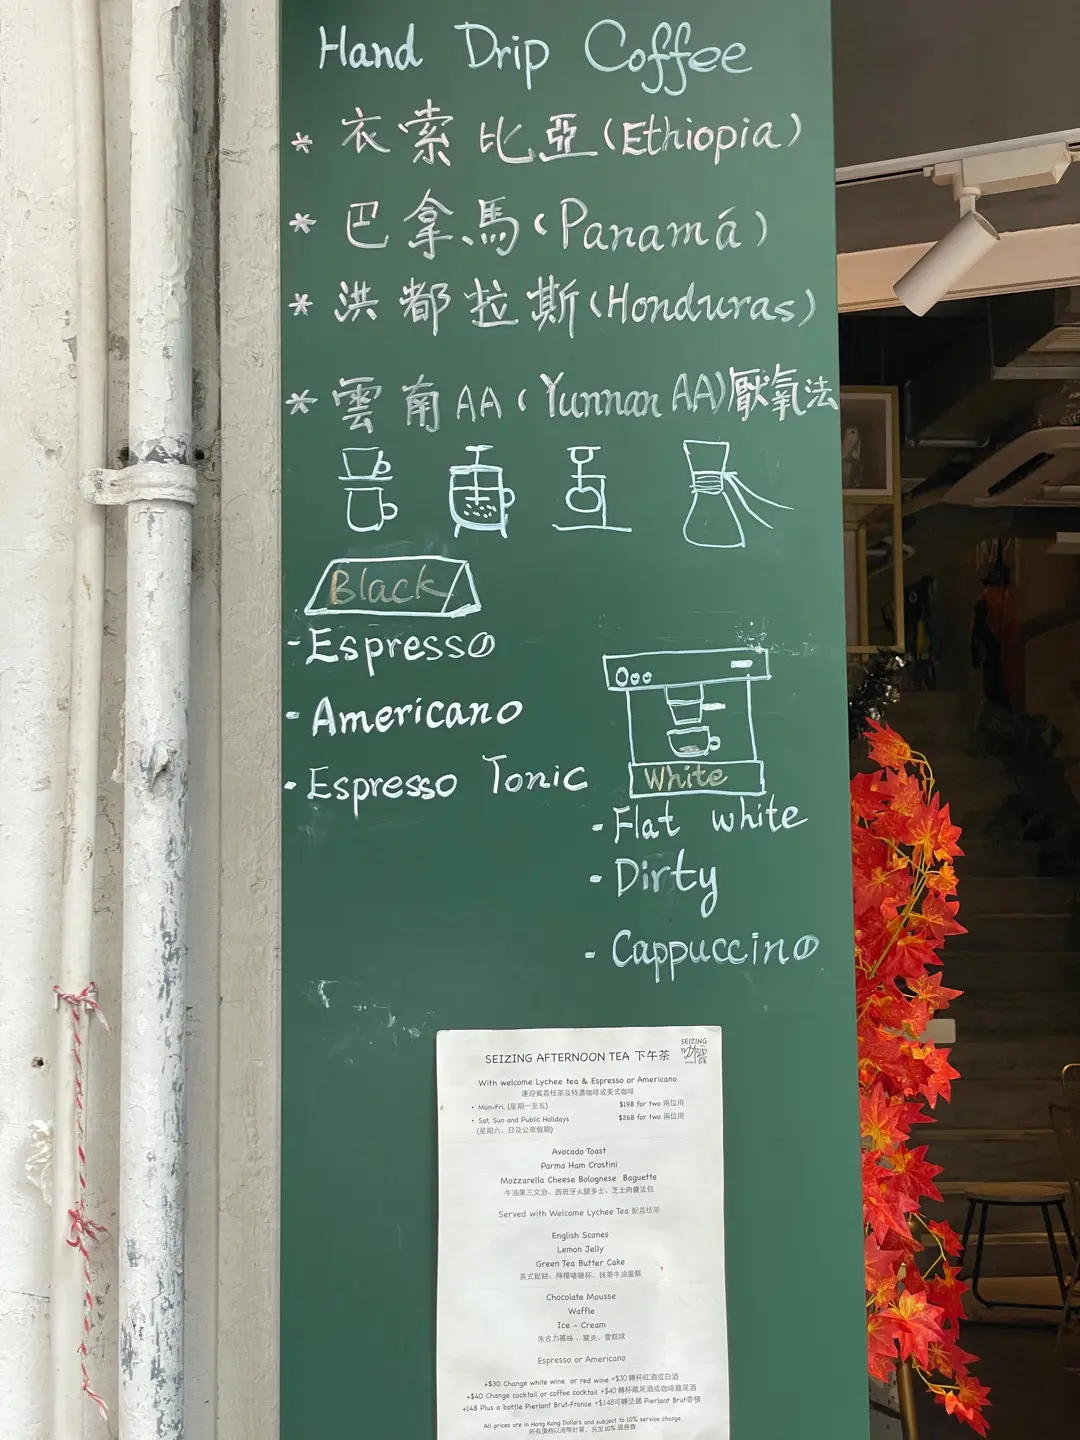 Hand Drip Coffee
* 衣索比亞 (Ethiopia)
* 巴拿馬 (Panamá)
* 洪都拉斯 (Honduras)
* 雲南 AA (Yunnan AA) 厭氧法
Black
- Espresso
- Americano
- Espresso Tonic
White
- Flat white
- Dirty
- Cappuccino
SEIZING AFTERNOON TEA 下午茶
SEIZING
With welcome Lychee tea & Espresso or Americano
連迎賓荔枝茶及特濃咖啡或美式咖啡
• Mon-Fri, (星期一至五) $198 for two 兩位用
• Sat, Sun and Public Holidays $268 for two 兩位用
(星期六、日及公眾假期)
Avocado Toast
Parma Ham Crostini
Mozzarella Cheese Bolognese Baguette
牛油果三文治、西班牙火腿多士、芝士肉醬法包
Served with Welcome Lychee Tea 配荔枝茶
English Scones
Lemon Jelly
Green Tea Butter Cake
英式鬆餅、檸檬啫喱杯、抹茶牛油蛋糕
Chocolate Mousse
Waffle
Ice - Cream
朱古力慕絲、窩夫、雪糕球
Espresso or Americano
+$30 Change white wine or red wine +$30 轉杯紅酒或白酒
+$40 Change cocktail or coffee cocktail +$40 轉杯雞尾酒或咖啡雞尾酒
+148 Plus a bottle Pierlant Brut-France +$148可轉法國 Pierlant Brut香檳
All prices are in Hong Kong Dollars and subject to 10% service charge
所有價格以港幣計算, 另加10% 服務費